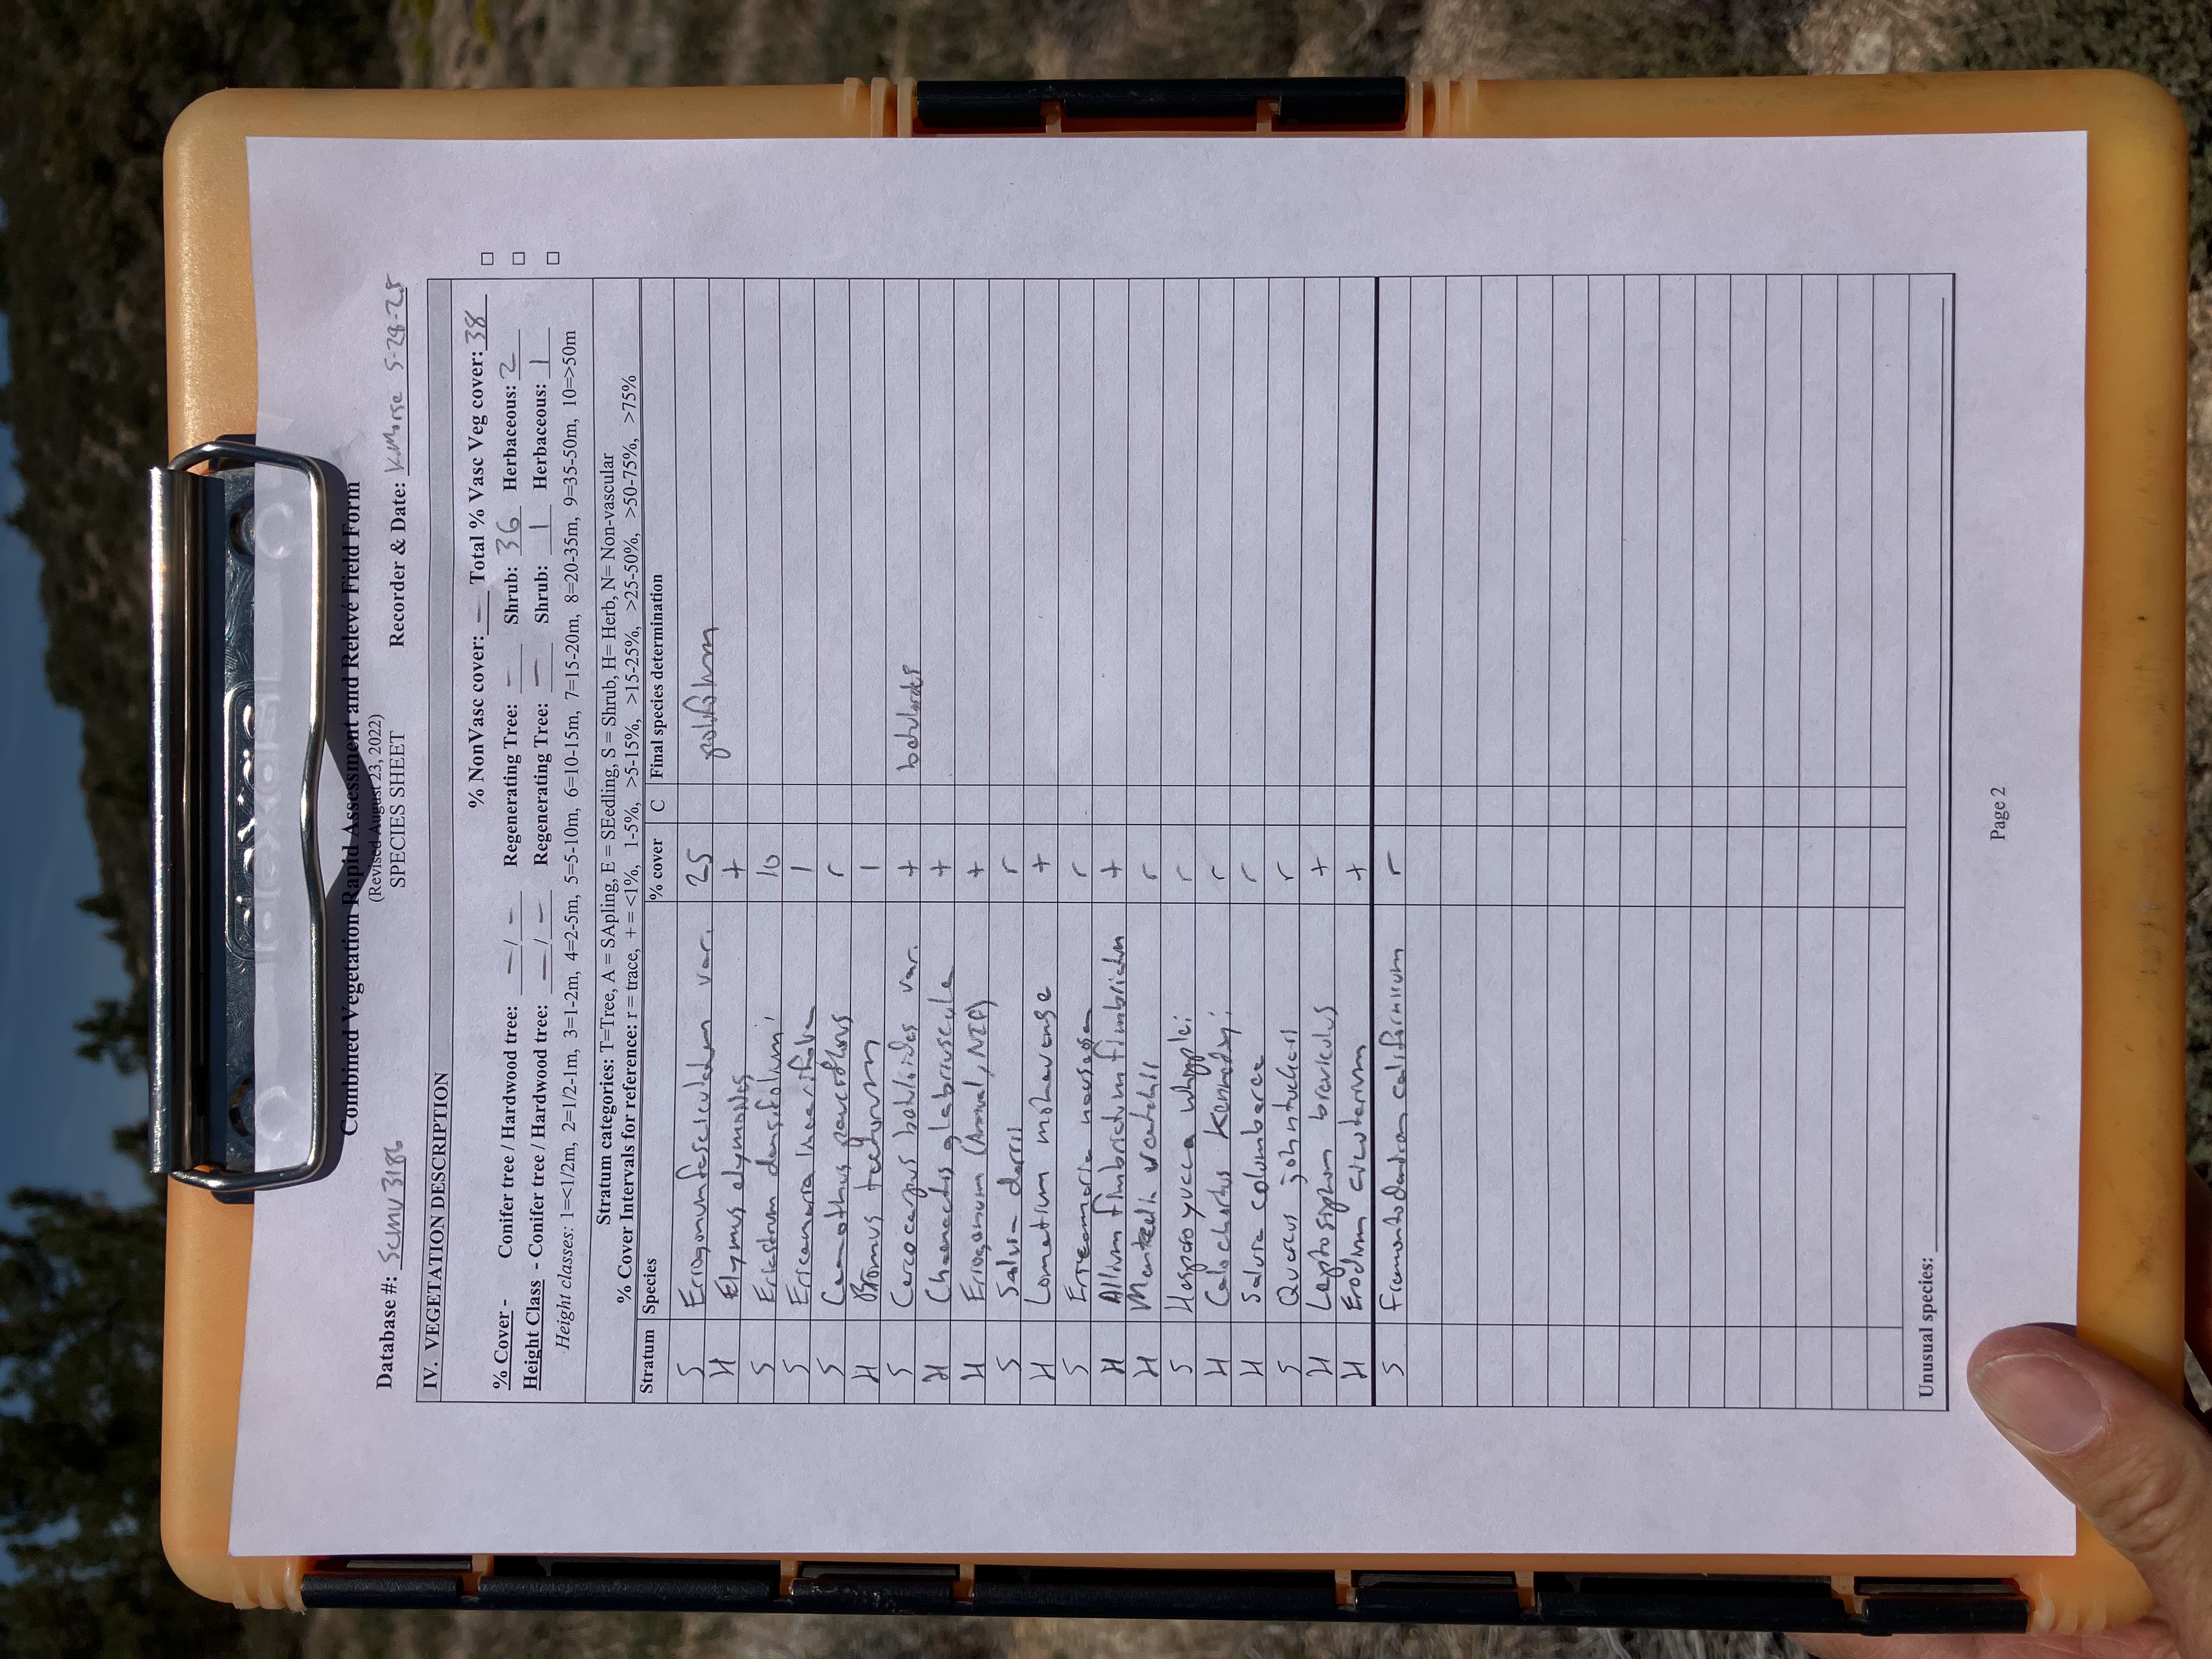 Combined Vegetation Rapid Assessment and Relevé Field Form
(Revised August 23, 2022)
SPECIES SHEET
Database #: SCMV3186 Recorder & Date: KMorse 5-28-25
IV. VEGETATION DESCRIPTION
% NonVasc cover: — Total % Vasc Veg cover: 38 □
% Cover - Conifer tree / Hardwood tree: — / — Regenerating Tree: — Shrub: 36 Herbaceous: 2 □
Height Class - Conifer tree / Hardwood tree: — / — Regenerating Tree: — Shrub: 1 Herbaceous: 1 □
Height classes: 1=<1/2m, 2=1/2-1m, 3=1-2m, 4=2-5m, 5=5-10m, 6=10-15m, 7=15-20m, 8=20-35m, 9=35-50m, 10=>50m
Stratum categories: T=Tree, A = SApling, E = SEedling, S = Shrub, H= Herb, N= Non-vascular
% Cover Intervals for reference: r = trace, + = <1%, 1-5%, >5-15%, >15-25%, >25-50%, >50-75%, >75%
Stratum Species % cover C Final species determination
S Eriogonum fasciculatum var. 25 polifolium
H Elymus elymoides +
S Eriastrum densifolium 10
S Ericameria linearifolia 1
S Ceanothus pauciflorus r
H Bromus tectorum 1
S Cercocarpus betuloides var. + betuloides
H Chaenactis glabriuscula +
H Eriogonum (annual, +
S Salvia dorrii r
H Lomatium mohavense +
S Ericameria nauseosa r
H Allium fimbriatum fimbriatum +
H Mentzelia veatchii r
S Hesperoyucca whipplei r
H Calochortus Kennedyi r
H Salvia columbariae r
S Quercus john-tuckeri r
H Leptosiphon breviculus +
H Erodium cicutarium +
S Fremontodendron californicum r
Unusual species:
Page 2